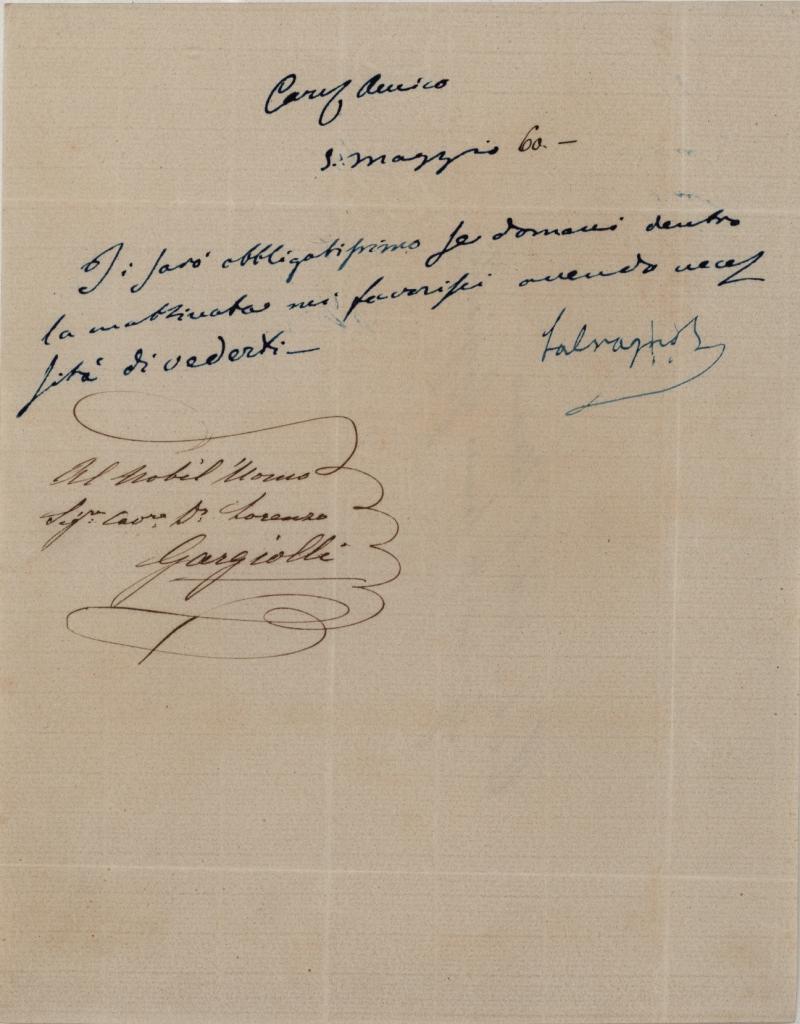 Car° Amico
5. maggio 60. –
Ti sarò obbligatissimo se domani dentro
la mattinata mi favorissi avendo neces
sità di vederti –
Salvagnoli
Al Nobil Uomo
Sig.re Cav.re D.r Lorenzo
Gargiolli